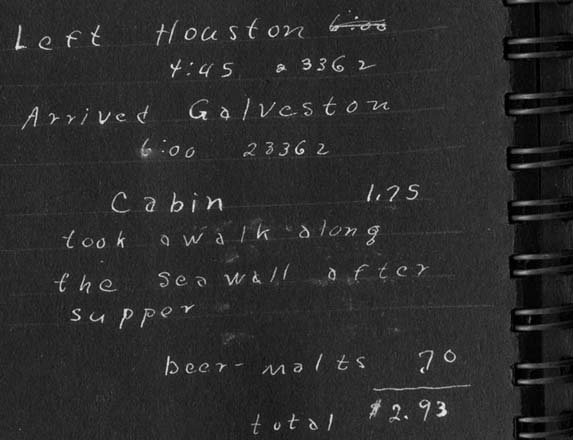 Left Houston 6:00
4:45 23362
Arrived Galveston
6:00 23362
Cabin 1.75
took a walk along
the seawall after
supper
beer-malts .70
total $2.93